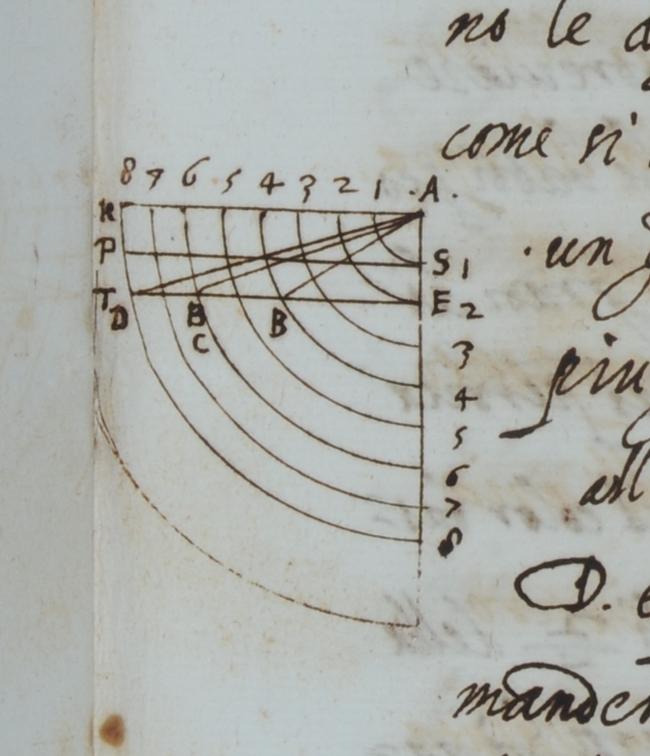 no le
come si
8 7 6 5 4 3 2 1 · A ·
R
P
S 1
· un
T
E 2
D B B
C
3
piu
4
5
6
7
8
all
D.